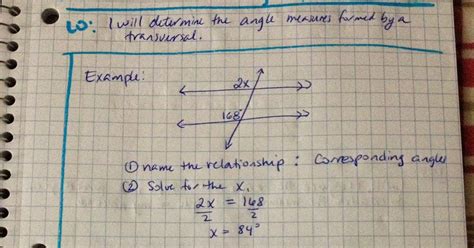 LO: I will determine the angle measures formed by a
transversal.
Example:
2x
168°
① name the relationship : Corresponding angles
② Solve for the x.
2x = 168
2 2
x = 84°